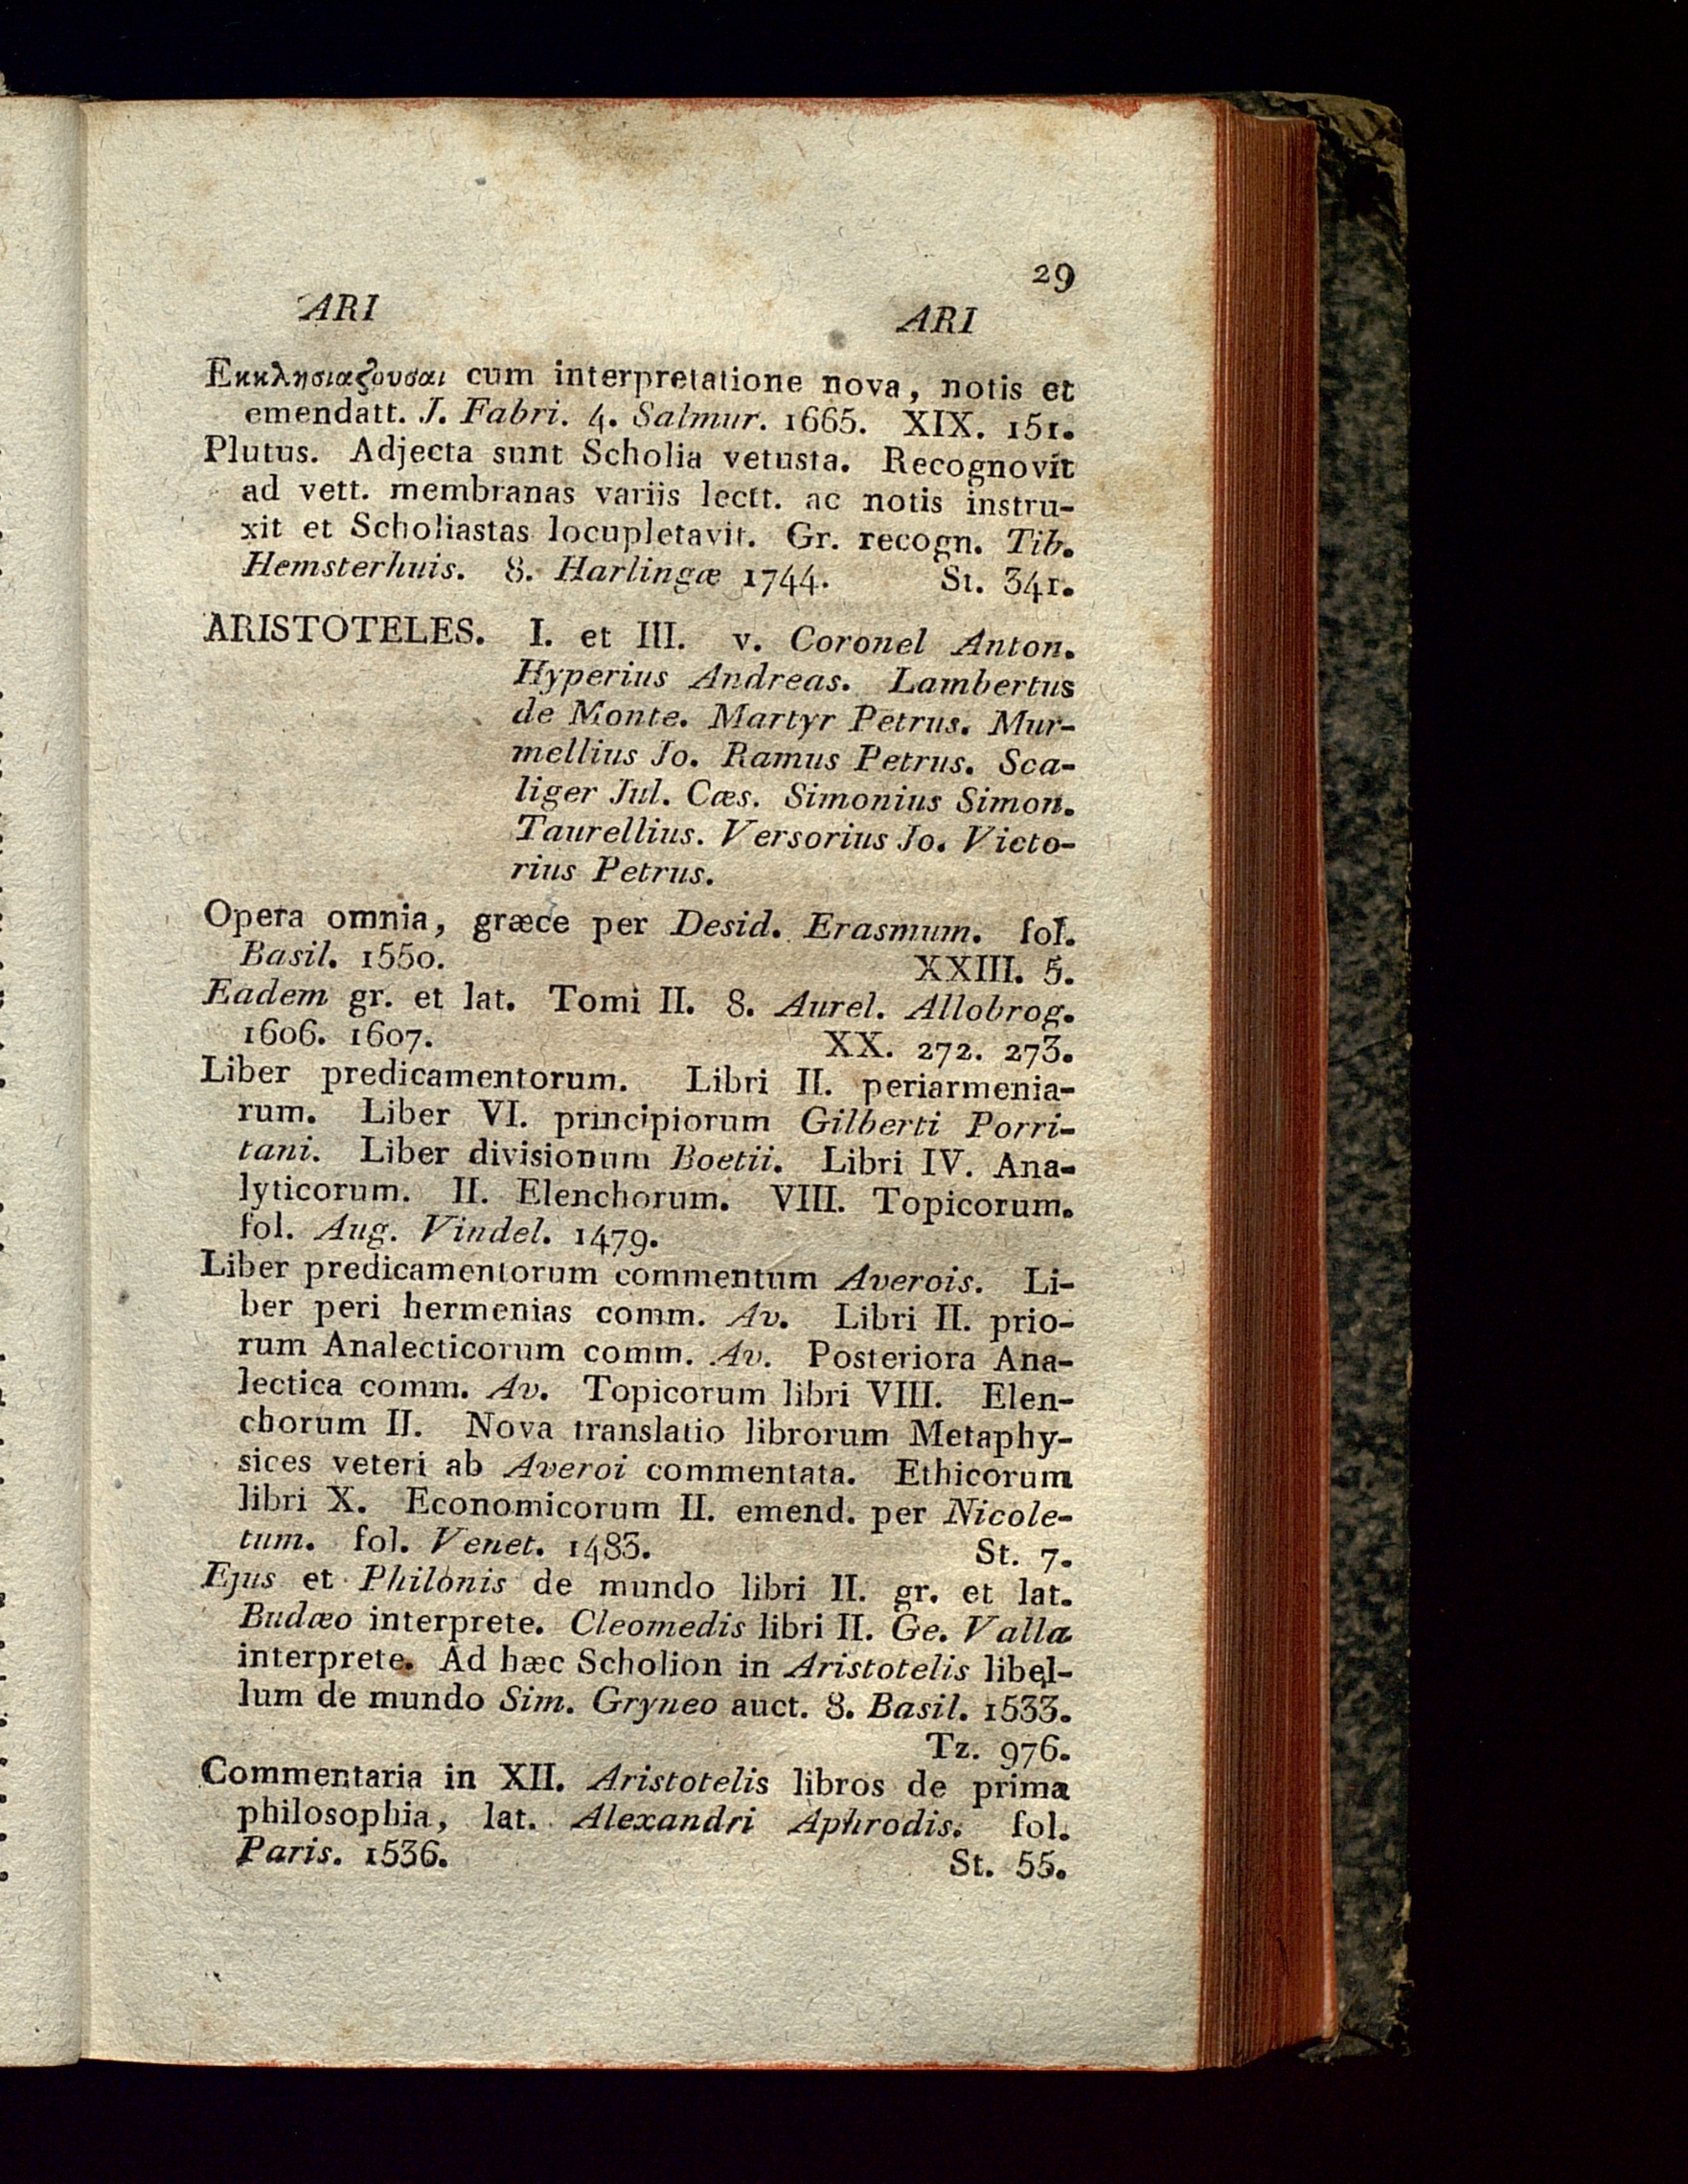 29
ARI ARI
Εκκλησιαζουσαι cum interpretatione nova, notis et
emendatt. J. Fabri. 4. Salmur. 1665. XIX. 151.
Plutus. Adjecta sunt Scholia vetusta. Recognovit
ad vett. membranas variis lectt. ac notis instru-
xit et Scholiastas locupletavit. Gr. recogn. Tib.
Hemsterhuis. 8. Harlingæ 1744. St. 341.
ARISTOTELES. I. et III. v. Coronel Anton.
Hyperius Andreas. Lambertus
de Monte. Martyr Petrus. Mur-
mellius Jo. Ramus Petrus. Sca-
liger Jul. Cæs. Simonius Simon.
Taurellius. Versorius Jo. Victo-
rius Petrus.
Opera omnia, græce per Desid. Erasmum. fol.
Basil. 1550. XXIII. 5.
Eadem gr. et lat. Tomi II. 8. Aurel. Allobrog.
1606. 1607. XX. 272. 273.
Liber predicamentorum. Libri II. periarmenia-
rum. Liber VI. principiorum Gilberti Porri-
tani. Liber divisionum Boetii. Libri IV. Ana-
lyticorum. II. Elenchorum. VIII. Topicorum.
fol. Aug. Vindel. 1479.
Liber predicamentorum commentum Averois. Li-
ber peri hermenias comm. Av. Libri II. prio-
rum Analecticorum comm. Av. Posteriora Ana-
lectica comm. Av. Topicorum libri VIII. Elen-
chorum II. Nova translatio librorum Metaphy-
sices veteri ab Averoi commentata. Ethicorum
libri X. Economicorum II. emend. per Nicole-
tum. fol. Venet. 1483. St. 7.
Ejus et Philonis de mundo libri II. gr. et lat.
Budæo interprete. Cleomedis libri II. Ge. Valla
interprete. Ad hæc Scholion in Aristotelis libel-
lum de mundo Sim. Gryneo auct. 8. Basil. 1533.
Tz. 976.
Commentaria in XII. Aristotelis libros de prima
philosophia, lat. Alexandri Aphrodis. fol.
Paris. 1536. St. 55.